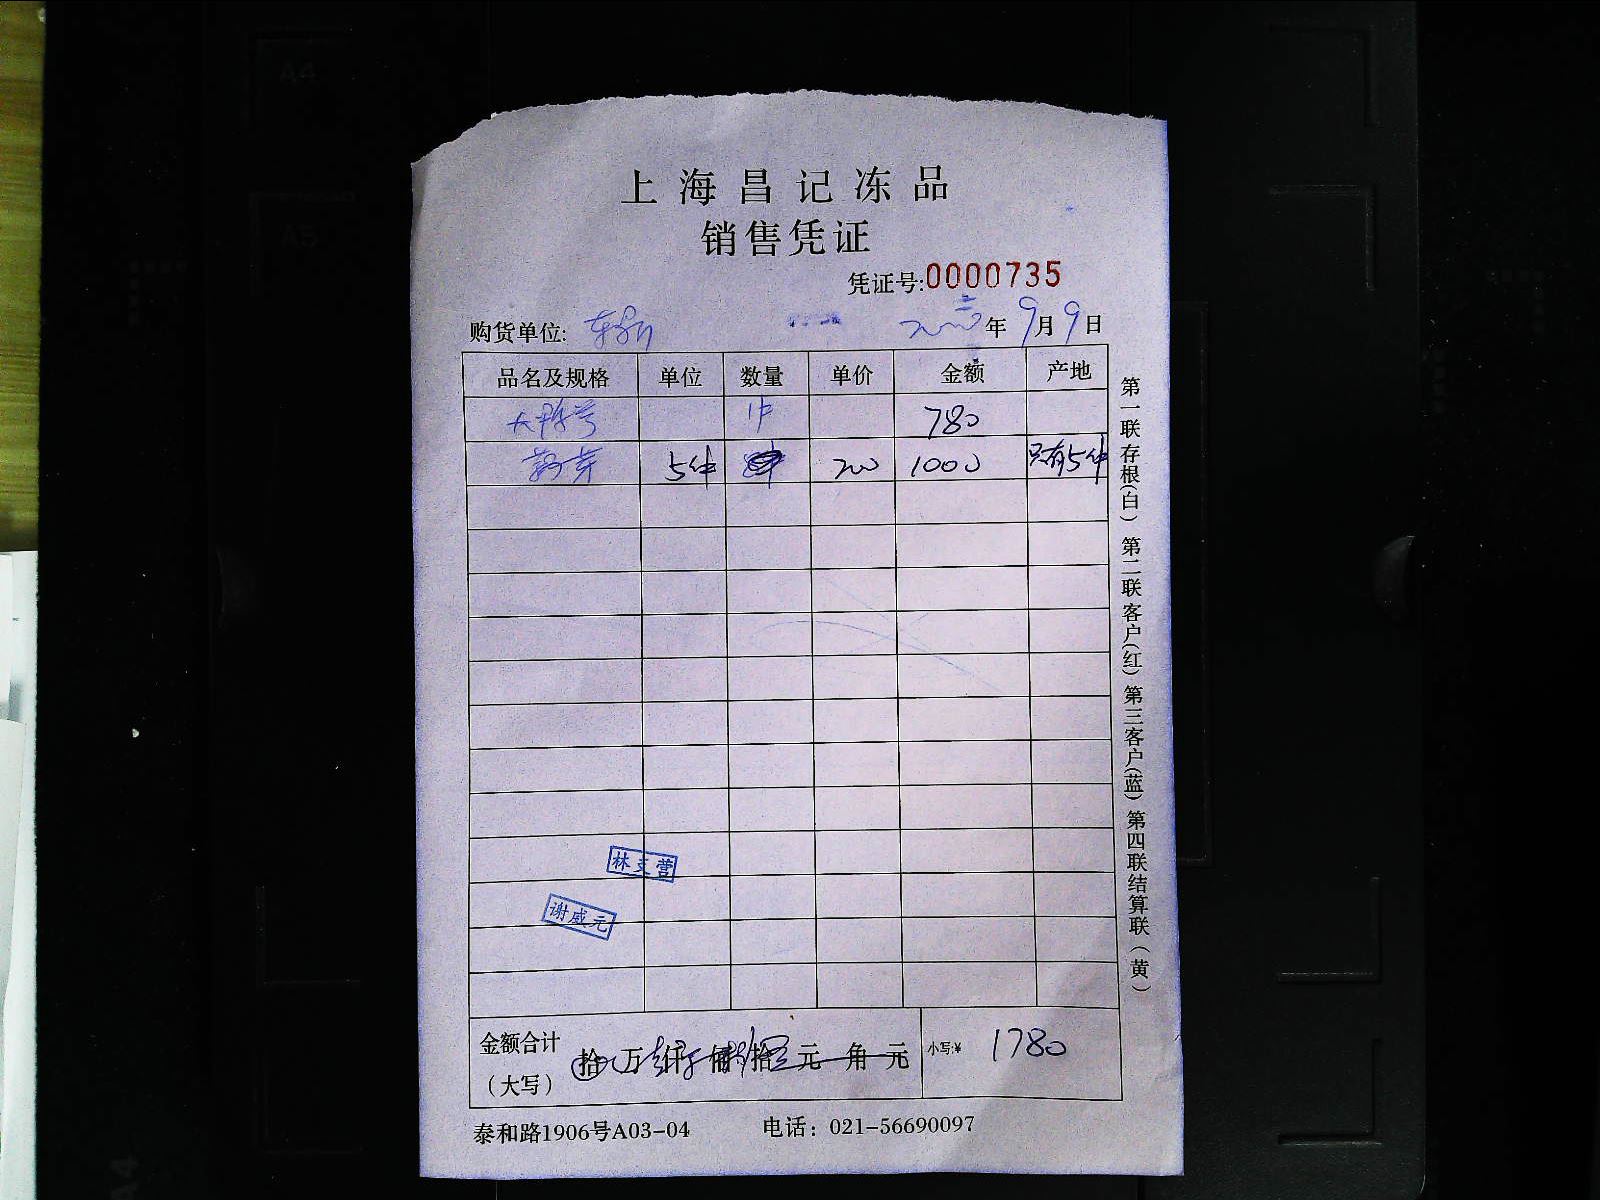 上海昌记冻品
销售凭证
凭证号:0000735
购货单位: 年9月9日
品名及规格 单位 数量 单价 金额 产地
大 1件 780
5件 200 1000 只有5件
第一联存根(白) 第二联客户(红) 第三客户(蓝) 第四联结算联(黄)
林支营
谢威元
金额合计(大写) 拾 万 仟 佰 拾 元 角 元 小写:¥ 1780
泰和路1906号A03-04 电话：021-56690097